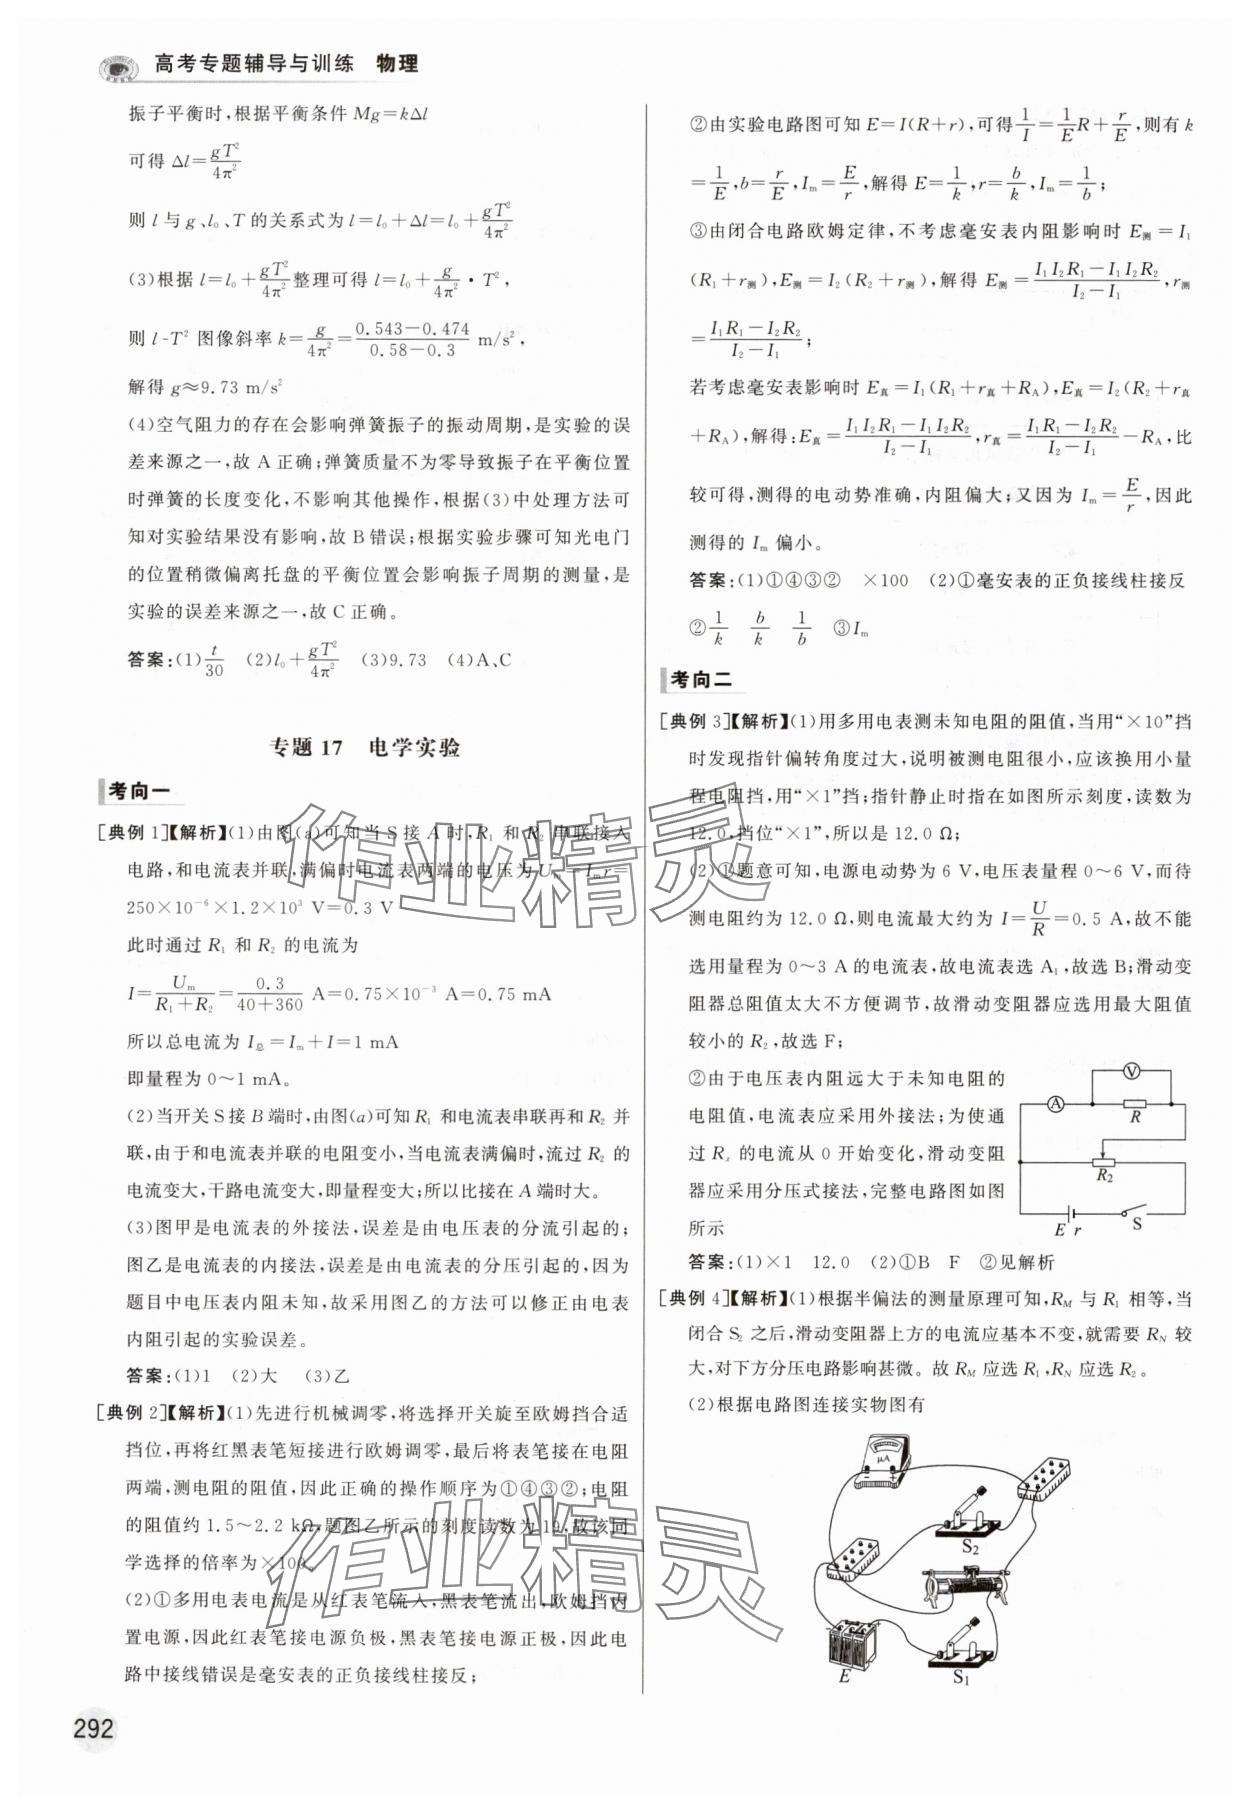 高考专题辅导与训练 物理
振子平衡时,根据平衡条件 Mg=kΔl
可得 Δl=gT²/4π²
则 l 与 g、l₀、T 的关系式为 l=l₀+Δl=l₀+gT²/4π²
(3)根据 l=l₀+gT²/4π²整理可得 l=l₀+g/4π²·T²,
则 l-T² 图像斜率 k=g/4π²=(0.543-0.474)/(0.58-0.3) m/s²,
解得 g≈9.73 m/s²
(4)空气阻力的存在会影响弹簧振子的振动周期,是实验的误
差来源之一,故 A 正确;弹簧质量不为零导致振子在平衡位置
时弹簧的长度变化,不影响其他操作,根据(3)中处理方法可
知对实验结果没有影响,故 B 错误;根据实验步骤可知光电门
的位置稍微偏离托盘的平衡位置会影响振子周期的测量,是
实验的误差来源之一,故 C 正确。
答案:(1)t/30 (2)l₀+gT²/4π² (3)9.73 (4)A、C
专题 17 电学实验
考向一
[典例 1]【解析】(1)由图(a)可知当 S 接 A 时,R₁ 和 R₂ 串联接入
电路,和电流表并联,满偏时电流表两端的电压为 Uₘ=Iₘr=
250×10⁻⁶×1.2×10³ V=0.3 V
此时通过 R₁ 和 R₂ 的电流为
I=Uₘ/(R₁+R₂)=0.3/(40+360) A=0.75×10⁻³ A=0.75 mA
所以总电流为 I总=Iₘ+I=1 mA
即量程为 0～1 mA。
(2)当开关 S 接 B 端时,由图(a)可知 R₁ 和电流表串联再和 R₂ 并
联,由于和电流表并联的电阻变小,当电流表满偏时,流过 R₂ 的
电流变大,干路电流变大,即量程变大;所以比接在 A 端时大。
(3)图甲是电流表的外接法,误差是由电压表的分流引起的;
图乙是电流表的内接法,误差是由电流表的分压引起的,因为
题目中电压表内阻未知,故采用图乙的方法可以修正由电表
内阻引起的实验误差。
答案:(1)1 (2)大 (3)乙
[典例 2]【解析】(1)先进行机械调零,将选择开关旋至欧姆挡合适
挡位,再将红黑表笔短接进行欧姆调零,最后将表笔接在电阻
两端,测电阻的阻值,因此正确的操作顺序为①④③②;电阻
的阻值约 1.5～2.2 kΩ,题图乙所示的刻度读数为 19,故该同
学选择的倍率为×100
(2)①多用电表电流是从红表笔流入,黑表笔流出,欧姆挡内
置电源,因此红表笔接电源负极,黑表笔接电源正极,因此电
路中接线错误是毫安表的正负接线柱接反;
292
②由实验电路图可知 E=I(R+r),可得1/I=1/E R+r/E,则有 k
=1/E,b=r/E,Iₘ=E/r,解得 E=1/k,r=b/k,Iₘ=1/b;
③由闭合电路欧姆定律,不考虑毫安表内阻影响时 E测=I₁
(R₁+r测),E测=I₂(R₂+r测),解得 E测=(I₁I₂R₁-I₁I₂R₂)/(I₂-I₁),r测
=(I₁R₁-I₂R₂)/(I₂-I₁);
若考虑毫安表影响时 E真=I₁(R₁+r真+R_A),E真=I₂(R₂+r真
+R_A),解得:E真=(I₁I₂R₁-I₁I₂R₂)/(I₂-I₁),r真=(I₁R₁-I₂R₂)/(I₂-I₁)-R_A,比
较可得,测得的电动势准确,内阻偏大;又因为 Iₘ=E/r,因此
测得的 Iₘ 偏小。
答案:(1)①④③② ×100 (2)①毫安表的正负接线柱接反
②1/k b/k 1/b ③Iₘ
考向二
[典例 3]【解析】(1)用多用电表测未知电阻的阻值,当用“×10”挡
时发现指针偏转角度过大,说明被测电阻很小,应该换用小量
程电阻挡,用“×1”挡;指针静止时指在如图所示刻度,读数为
12.0,挡位“×1”,所以是 12.0 Ω;
(2)①题意可知,电源电动势为 6 V,电压表量程 0～6 V,而待
测电阻约为 12.0 Ω,则电流最大约为 I=U/R=0.5 A,故不能
选用量程为 0～3 A 的电流表,故电流表选 A₁,故选 B;滑动变
阻器总阻值太大不方便调节,故滑动变阻器应选用最大阻值
较小的 R₂,故选 F;
②由于电压表内阻远大于未知电阻的
电阻值,电流表应采用外接法;为使通
过 Rₓ 的电流从 0 开始变化,滑动变阻
器应采用分压式接法,完整电路图如图
所示
V
A
R
R₂
E r
S
答案:(1)×1 12.0 (2)①B F ②见解析
[典例 4]【解析】(1)根据半偏法的测量原理可知,R_M 与 R₁ 相等,当
闭合 S₂ 之后,滑动变阻器上方的电流应基本不变,就需要 R_N 较
大,对下方分压电路影响甚微。故 R_M 应选 R₁,R_N 应选 R₂。
(2)根据电路图连接实物图有
μA
S₂
E
S₁
作业精灵
作业精灵